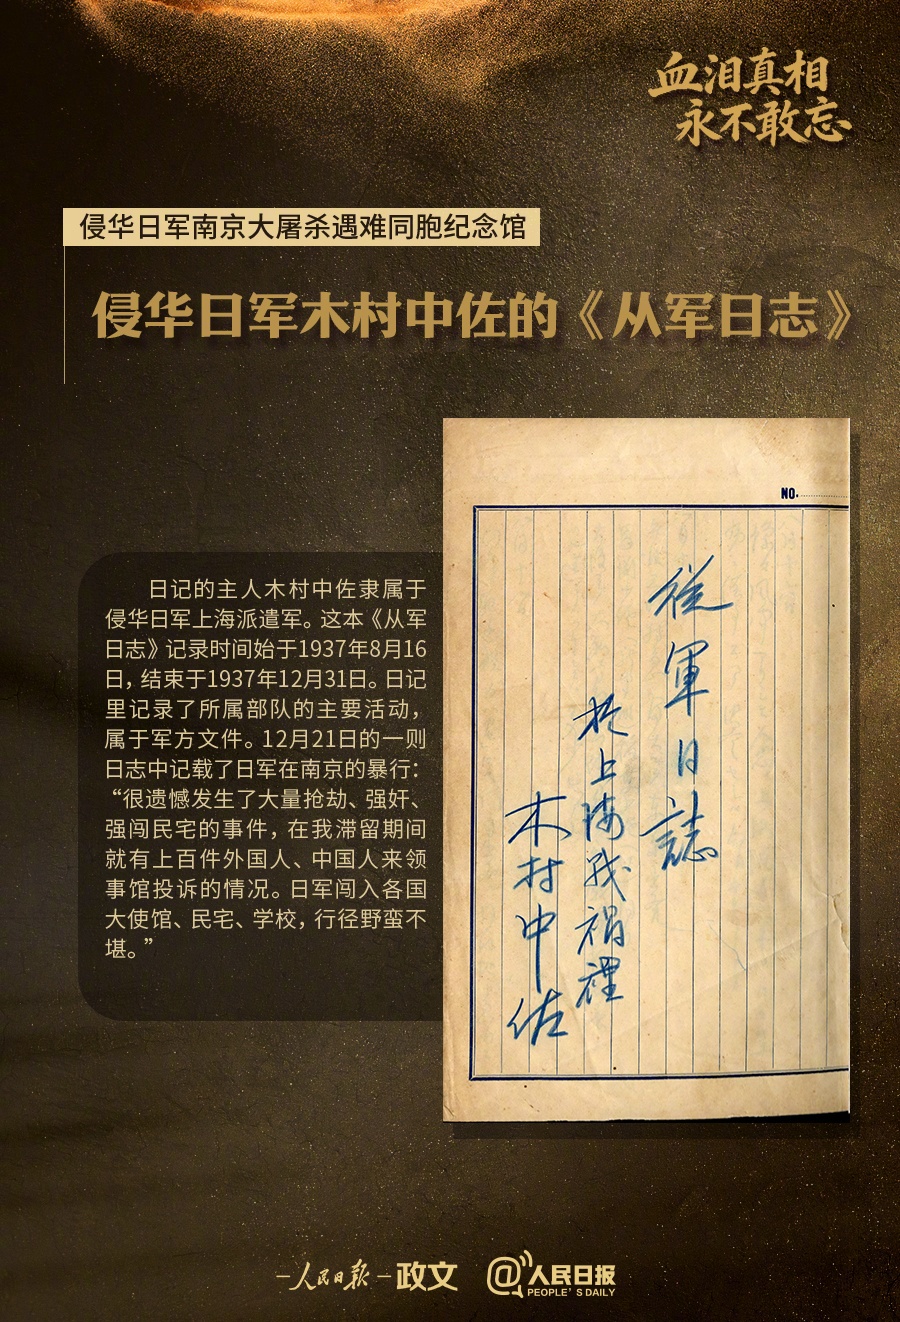 血泪真相
永不敢忘
侵华日军南京大屠杀遇难同胞纪念馆
侵华日军木村中佐的《从军日志》
日记的主人木村中佐隶属于
侵华日军上海派遣军。这本《从军
日志》记录时间始于1937年8月16
日，结束于1937年12月31日。日记
里记录了所属部队的主要活动，
属于军方文件。12月21日的一则
日志中记载了日军在南京的暴行：
“很遗憾发生了大量抢劫、强奸、
强闯民宅的事件，在我滞留期间
就有上百件外国人、中国人来领
事馆投诉的情况。日军闯入各国
大使馆、民宅、学校，行径野蛮不
堪。”
NO.
従軍日誌
於上海戦禍裡
木村中佐
人民日报 政文
@人民日报
PEOPLE'S DAILY